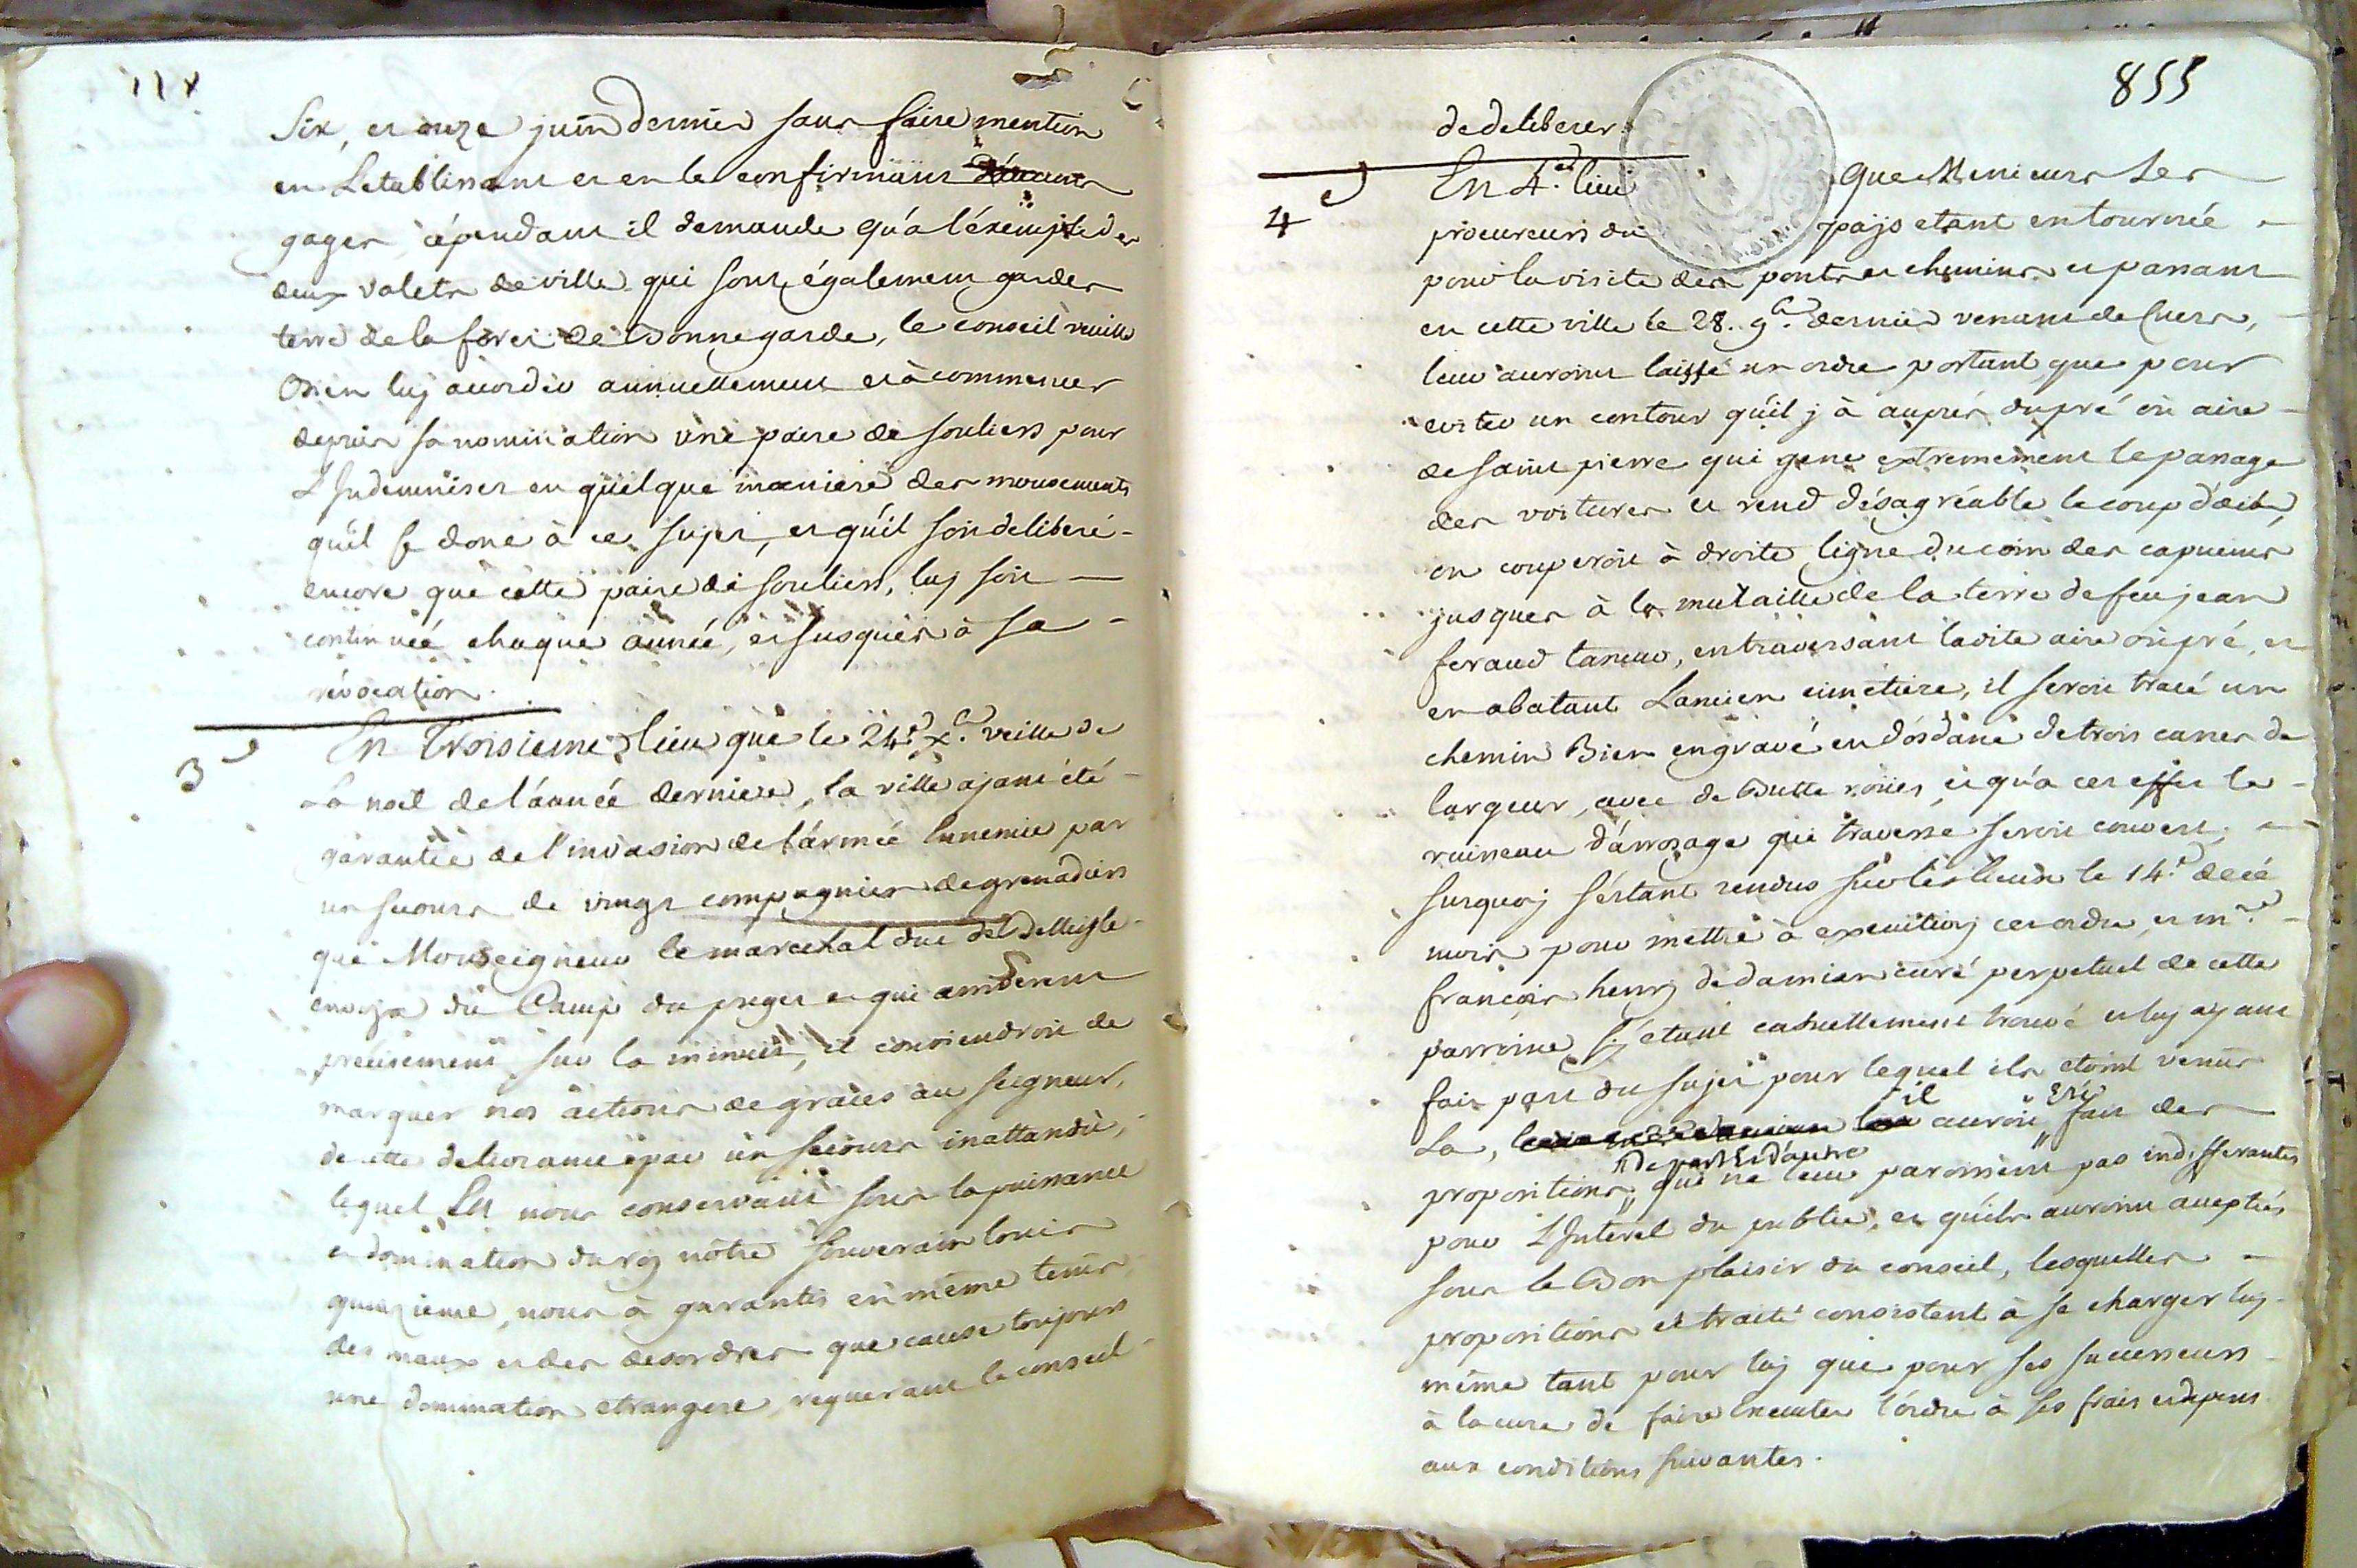 six, et onze juin dernier sans faire mention
en L'etablissant et en le confirmant
gages, cépendant il demande qu'a l'éxemple des
deux valets de ville qui sont également gardes
terre de la foret de Bonnegarde, le conseil veuille
Bien luy accorder annuellement et à commencer
depuis sa nomination une paire de souliers pour
L'Indemniser en quelque maniere des mouvements
qu'il se done à ce sujet, et qu'il soit deliberé
encore que cette paire de souliers, luy soit
continueé chaque année, et jusques à sa
révocation.
3
En troisieme lieu que le 24.e x.e veille de
La noel de l'année derniere, la ville ajant été
garantie de l'invasion de l'armée Ennemie par
un secours de vingt compagnies de grenadiers
que Monseigneur le marechal duc de Belleisle
envoya du Camp du puget et qui arriverent
precisement sur la minuit, il conviendroit de
marquer nos actions de graces au seigneur,
de cette delivrance par un secours inattandu,
lequel En nous conservant sous la puissance
et domination du roy nôtre souverain louis
quinzieme, nous à garantis en même tems
des maux et des desordres que cause toujours
une domination etrangere, requerant le conseil
855
de deliberer.
4
En 4.e lieu que Messieurs Les
procureurs du pays etant en tournée
pour la visite des ponts et chemins et passant
en cette ville le 28. 9.e dernier venant de Cuers,
leur auroint laissé un ordre portant que pour
eviter un contour qu'il j à auprés du pré où aire
de saint pierre qui gene extremement le passage
des voitures et rend désagréable le coup d'œil,
on couperoit à droite ligne du coin des capucins
jusques à la muraille de la terre de feu jean
feraud taneur, en traversant ladite aire où pré, et
en abatant L'ancien cimetiere, il seroit tracé un
chemin Bien engravé en dosdane de trois canes de
largeur, avec de Butte roües, et qu'a cet effet le
ruisseau d'arrosage qui traverse seroit couvert,
surquoy s'éstant rendus sur les lieux le 14.e de cé
mois pour mettre à execution cet ordre, et m.re
françois henry de damian curé perpetuel de cette
parroisse s'j etant casuellement trouvé et luj ayant
fait part du sujet pour lequel ils etoint venus
La, il auroit Eté fait des
propositions de part et d'autre qui ne leur paroissent pas indifferantes
pour L'Interet du public, et qu'ils auroint acceptées
sous le Bon plaisir du conseil, lesquelles
propositions et traité consistent à se charger luj
même tant pour luj que pour ses successeurs
à la cure de faire Executer l'ordre à ses frais et depens
aux conditions suivantes.